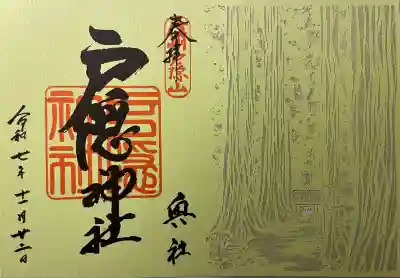 奉拝
戸隠神社
奥社
令和七年十一月廿二日